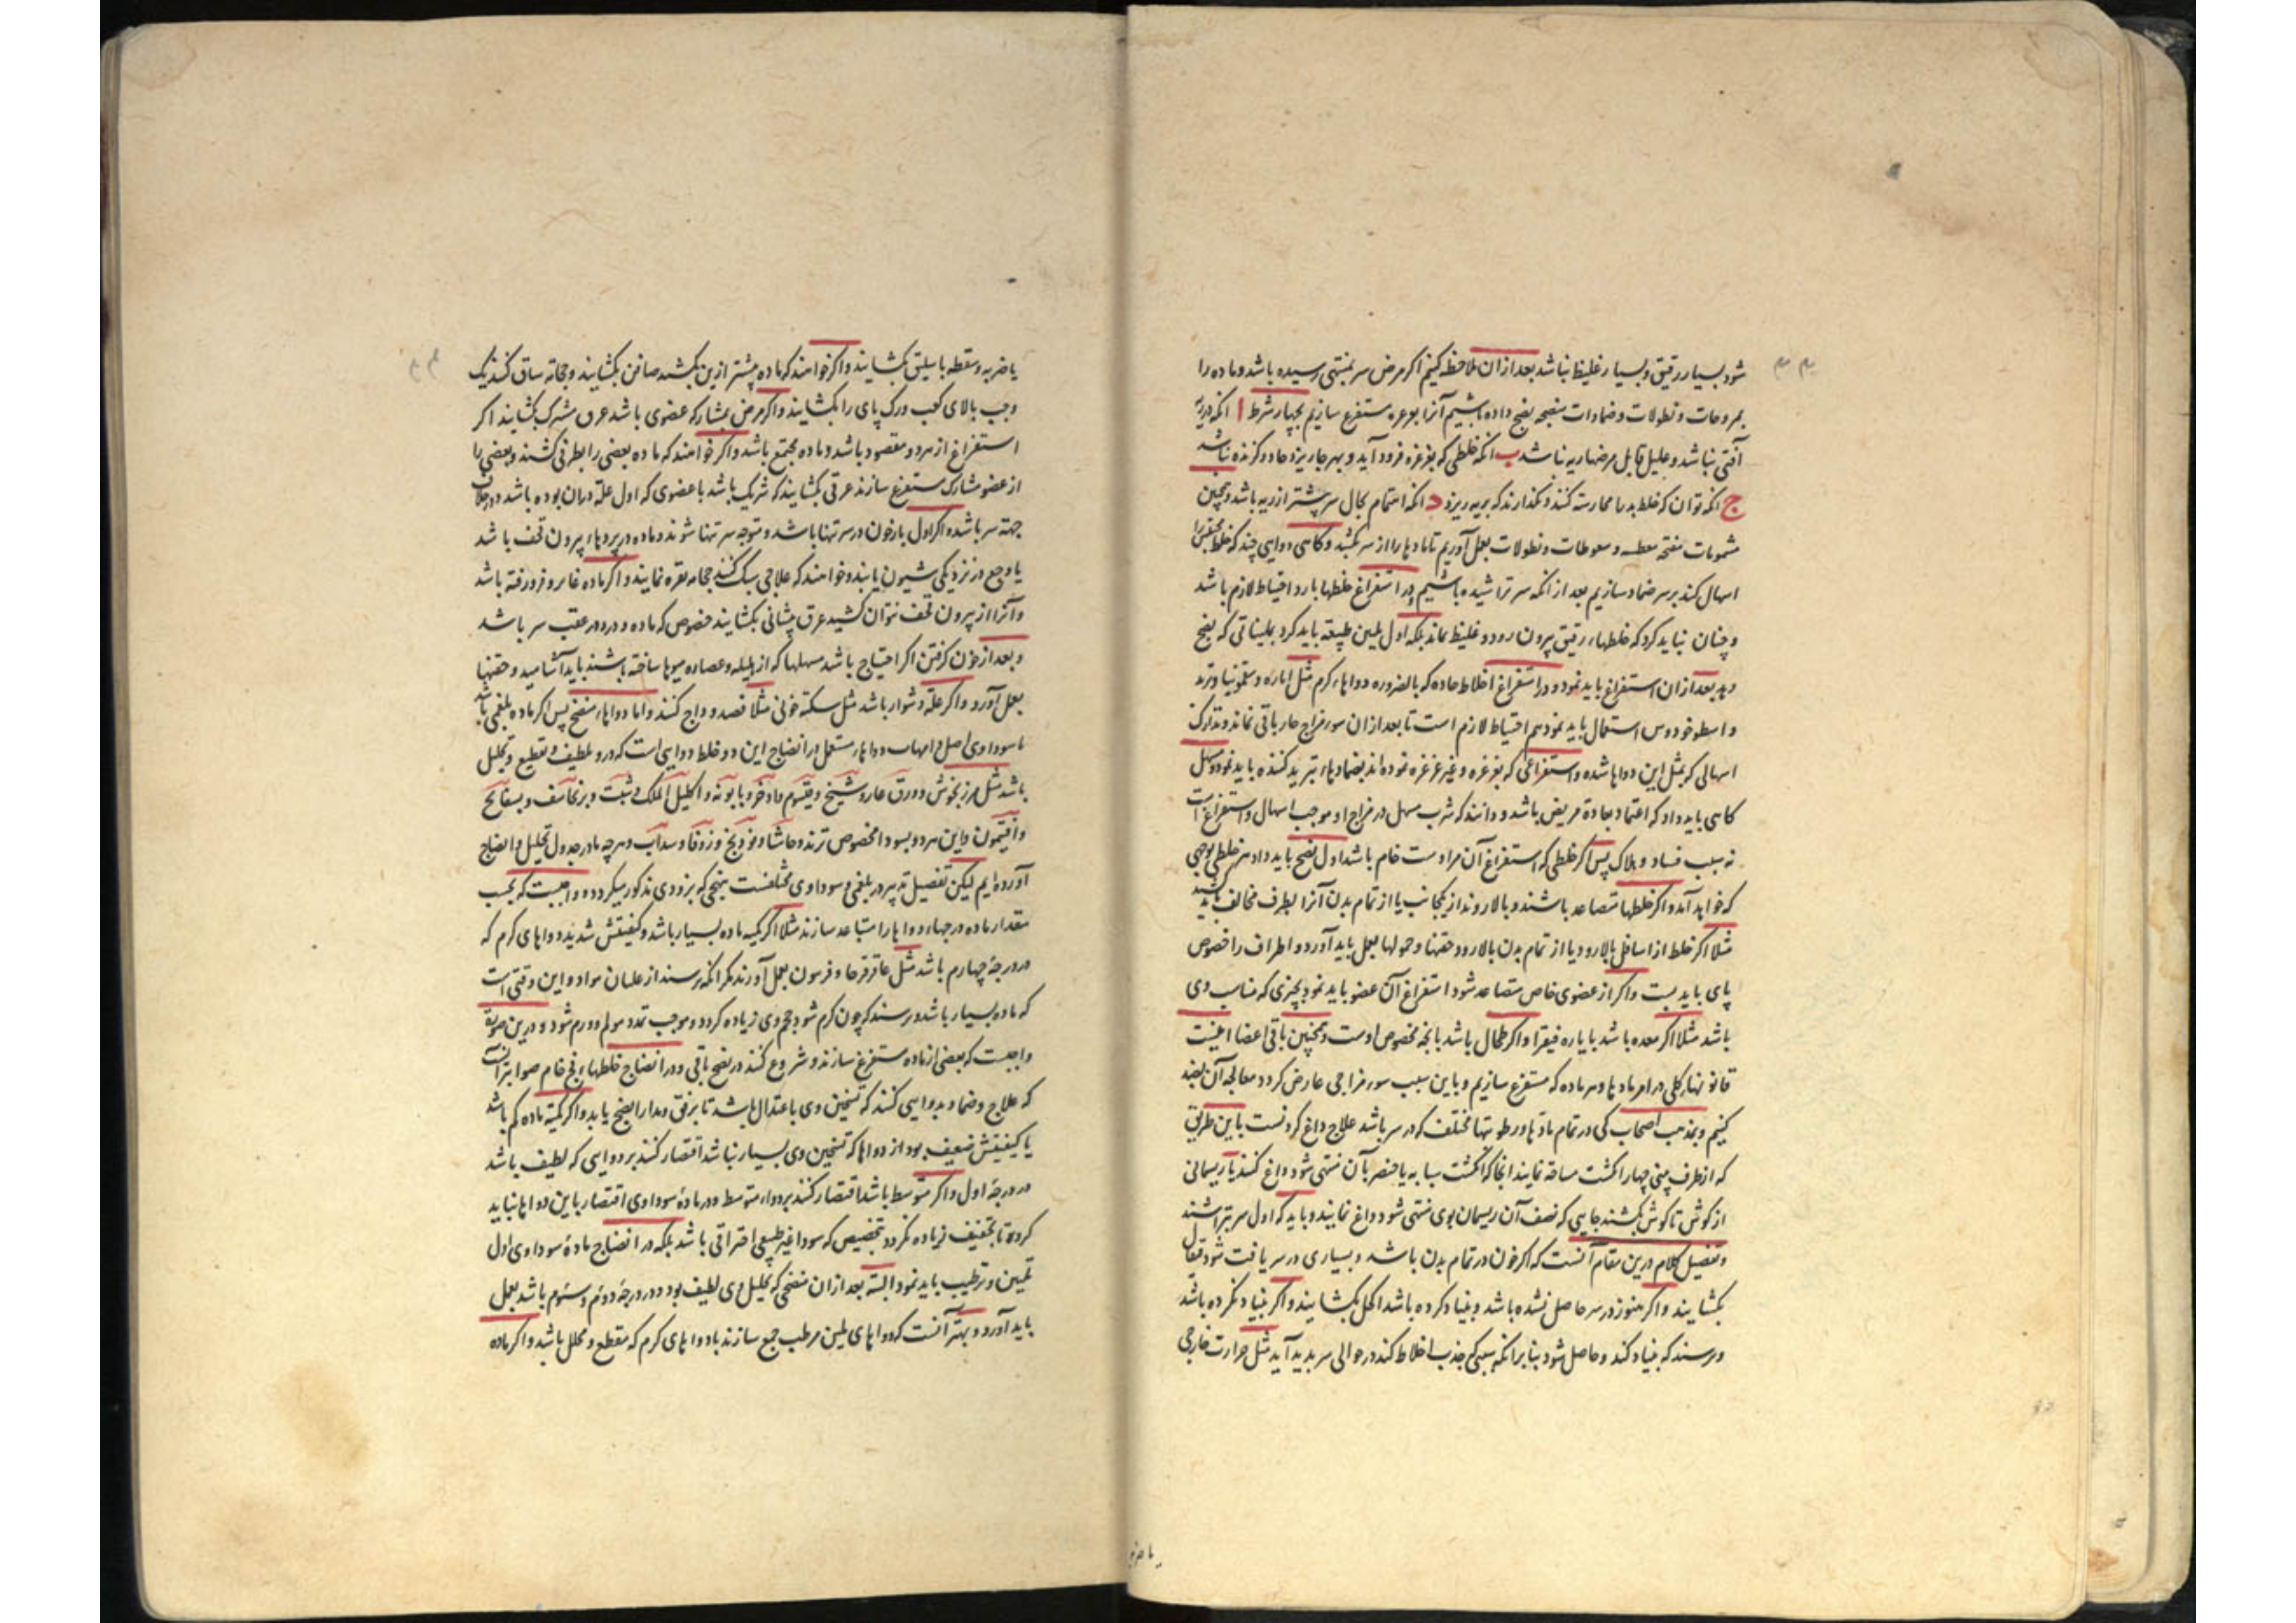 شود بسیار رقیق و بسیار غلیظ نباشد بعد ازان ملاحظه کنیم اکر مرض سر بمنتهی رسیده باشد و ماده را
بمروحات و نطولات و ضمادات منضجه نضج داده باشیم آنرا بغرغره مستفرغ سازیم بچهار شرط ا انکه در ریه
آفتی نباشد و علیل قابل مرضهاریه نباشد ب انکه خلطی که بغرغره فرود آید و بهر جا ریزد حاد و کزنده نباشد
ج انکه توان که خلط بد را ممارسته کنند و نکذارند که بریه ریزد د انکه اهتمام بحال سر پیشتر از ریه باشد و همچنین
شمومات مفتحه معطسه و سعوطات و نطولات بعمل آوریم تا مادها را از سر بکشد و کاهی دوایی چند که خلط محتقن را
اسهال کند بر سر ضماد سازیم بعد از انکه سر تراشیده باشیم و در استفراغ خلطها بارد احتیاط لازم باشد
و چنان نباید کرد که خلطهاء رقیق بیرون رود و غلیظ بماند بلکه اول تلیین طبیعه باید کرد بملیناتی که نضج
دهد بعد ازان استفراغ باید نمود و در استفراغ اخلاط حاده که بالضروره دواهاء کرم مثل ایاره و سقمونیا و تربد
و اسطوخودوس استعمال باید نمود هم احتیاط لازم است تا بعد ازان سوء مزاج حار باقی نماند و تدارک
اسهالی که بمثل این دواها شده و استفراغی که بغرغره و غیر غرغره نموده اند بضمادهاء تبرید کننده باید نمود و مسهل
کاهی باید داد که اعتماد بعادة مریض باشد و دانند که شرب مسهل در مزاج او موجب اسهال و استفراغ است
نه سبب فساد و هلاک پس اکر خلطی که استفراغ آن مراد ست خام باشد اول نضج باید داد هر خلطی بوجهی
که خواهد آمد و اکر خلطها متصاعد باشند و بالا روند از یکجانب یا از تمام بدن آنرا بطرف مخالف باید کشید
مثلا اکر خلط از اسافل بالا رود یا از تمام بدن بالا رود حقنها و حمولها بعمل باید آورد و اطراف را خصوص
پای باید بست و اکر از عضوی خاص متصاعد شود استفراغ آن عضو باید نمود بچیزی که مناسب وی
باشد مثلا اکر معده باشد بایاره فیقرا و اکر طحال باشد بانچه مخصوص اوست و همچنین باقی اعضا اینست
قانونها‌ء کلی در امر مادها و هر ماده که مستفرغ سازیم و باین سبب سوء مزاجی عارض کردد معالجه آن بضد
کنیم و بمذهب اصحاب کی در تمام مادها و رطوبتها مختلف که در سر باشد علاج داغ کردنست باین طریق
که از طرف بینی چهار انکشت مسافه نمایند انجا که انکشت سبابه یا خنصر بآن منتهی شود داغ کنند یا ریسمانی
از کوش تا کوش بکشند جایی که نصف آن ریسمان بوی منتهی شود داغ نمایند و باید که اول سر بتراشند
و تفصیل کلام درین مقام آنست که اکر خون در تمام بدن باشد و بسیاری در سر یافت شود قیفال
بکشایند و اکر هنوز در سر حاصل نشده باشد و بنیاد کرده باشد اکحل بکشایند و اکر بنیاد نکرده باشد
و ترسند که بنیاد کند و حاصل شود بنا بر انکه سببی که جذب اخلاط کند در حوالی سر پدید آید مثل حرارت خارجی
یا ضربه
یا ضربه و سقطه باسلیق بکشایند و اکر خواهند که ماده پیشتر ازین بکشد صافن بکشایند و حجامه ساق کنند یک
وجب بالای کعب و رک پای را بکشایند و اکر مرض بمشارکه عضوی باشد عرق مشترک بکشایند اکر
استفراغ از هر دو مقصود باشد و ماده مجتمع باشد و اکر خواهند که ماده بعضی را بطرفی کشند و بعضی را
از عضو مشارک مستفرغ سازند عرقی بکشایند که شریک باشد با عضوی که اول علة دران بوده باشد و در خلاف
جهة سر باشد و اکر اول بار خون در سر تنها باشد و متوجه سر تنها شوند و ماده در پردهاء بیرون قحف باشد
یا وجع در نزدیکی شیون یابند و خواهند که علاجی سبک کنند حجامه نقره نمایند و اکر ماده غایر و فرو رفته باشد
و آنرا از بیرون قحف نتوان کشید عرق پیشانی بکشایند خصوص که ماده و درد در عقب سر باشد
و بعد از خون کرفتن اکر احتیاج باشد مسهلها که از هلیله و عصاره میوها ساخته باشند باید آشامید و حقنها
بعمل آورد و اکر علة دشوار باشد مثل سکته خونی مثلا فصد وداج کنند و اما دواهاء منضج پس اکر ماده بلغمی باشد
یا سوداوی اصل و امهات دواهاء مستعمل در انضاج این دو خلط دوایی است که درو تلطیف و تقطیع و تحلیل
باشد مثل مرزنجوش و ورق غار و شیح و قیسوم و اذخر و بابونه و اکلیل الملک و شبت و برنجاسف و بسفایج
و افتیمون و این هر دو بسودا مخصوص ترند و حاشا و فودنج و زوفا و سداب و هر چه ما در جدول تحلیل و انضاج
آورده ایم لیکن تفصیل تدبیر در بلغمی و سوداوی مختلفست بنهجی که بزودی مذکور میکردد و واجبست که بحسب
مقدار ماده درجهاء دواها را متباعد سازند مثلا اکر کمیه ماده بسیار باشد و کیفیتش شدید دواهای کرم که
در درجهٔ چهارم باشد مثل عاقرقرحا و فربیون بعمل آورند مکر انکه ترسند از غلیان مواد و این وقتی است
که ماده بسیار باشد و ترسند که چون کرم شود حجم وی زیاده کردد و موجب تمدد مولم و ورم شود و درین صورة
واجبست که بعضی از ماده مستفرغ سازند و شروع کنند در نضج باقی و در انضاج خلطهاء فج خام صواب تر آنست
که علاج و ضماد بدوایی کنند که تسخین وی باعتدال باشد تا برفق و مدارا نضج یابد و اکر کمیه ماده کم باشد
یا کیفیتش ضعیف بود از دواها که تسخین وی بسیار نباشد اقتصار کنند بر دوایی که لطیف باشد
در درجهٔ اول و اکر متوسط باشد اقتصار کنند بر دواء متوسط و در مادهٔ سوداوی اقتصار باین دواها نباید
کرد تا تجفیف زیاده نکردد بتخصیص که سودا غیر طبیعی احتراقی باشد بلکه در انضاج مادهٔ سوداوی اول
تلیین و ترطیب باید نمود البته بعد ازان منضجی که تحلیل وی لطیف بود و در درجهٔ دوم و سوم باشد بعمل
باید آورد و بهتر آنست که دواهای ملین مرطب جمع سازند با دواهای کرم که مقطع و محلل باشد و اکر ماده